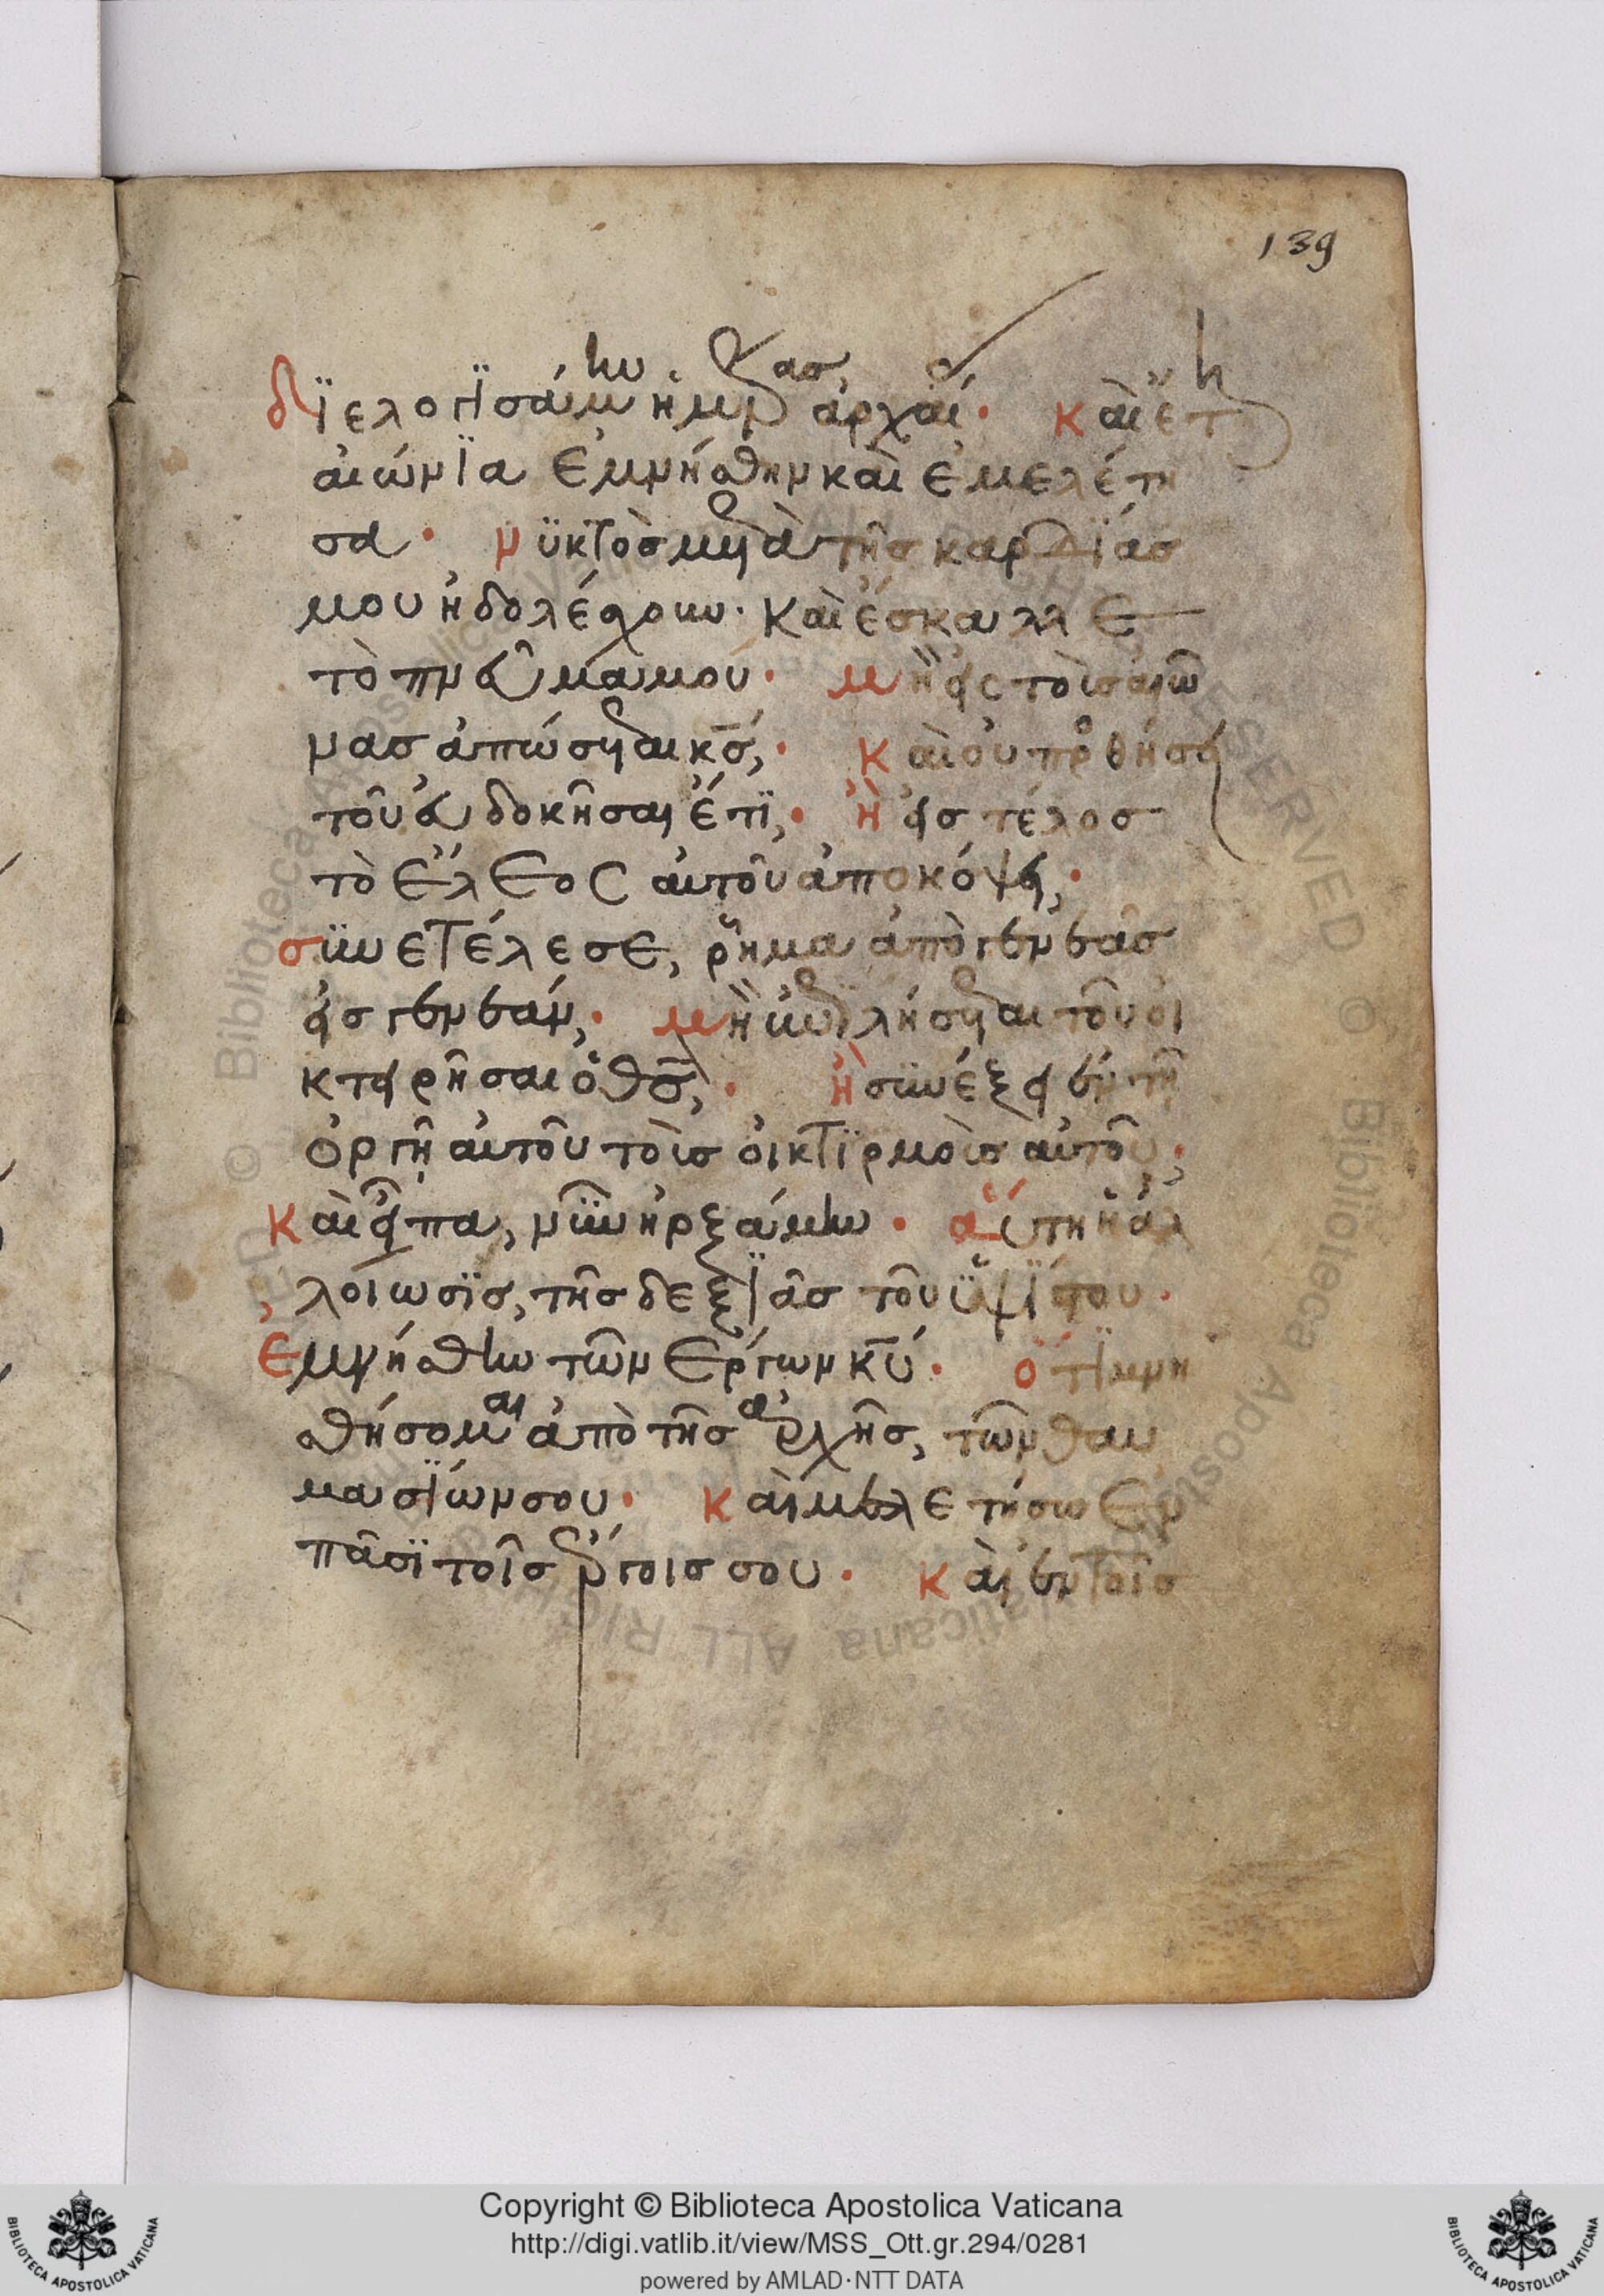 139
δϊελογϊσάμην ἡμέρας ἀρχαί· καὶ ἔτη
αιώνϊα ἐμνήσθην καὶ ἐμελέτη
σα· νϋκτὸς μετὰ τῆς καρδΐας
μου ἠδολέσχουν· καὶ ἔσκαλλε
τὸ πνεῦμα μου· μὴ εἰς τοὺς αἰῶ
νας ἀπώσεται κς̅· καὶ οὐ προσθήσει
τοῦ εὐδοκῆσαι ἔτϊ· ἢ εἰς τέλος
τὸ ἔλεος αὐτοῦ ἀποκόψει·
σϋνετέλεσε, ῥῆμα ἀπὸ γενεᾶς
εἰς γενεάν· μὴ ἐπιλήσεται τοῦ οἰ
κτειρῆσαι ὁ θς̅· ἢ σϋνέξει ἐν τῆ
ὀργῆ αὐτοῦ τοὺς οἰκτϊρμοὺς αὐτοῦ·
καὶ εἶπα, νῦν ἠρξάμην· αὕτη ἡ ἀλ
λοίωσϊς, τῆς δεξϊᾶς τοῦ ὑψϊστου·
ἐμνήσθην τῶν ἔργων κυ̅· ὅτϊ μνη
σθήσομαι ἀπὸ τῆς ἀρχῆς, τῶν θαυ
μασϊων σου· καὶ μελετήσω ἐν
πᾶσϊ τοῖς ἔργοις σου· καὶ ἐν τοῖς
Copyright © Biblioteca Apostolica Vaticana
http://digi.vatlib.it/view/MSS_Ott.gr.294/0281
powered by AMLAD·NTT DATA
BIBLIOTECA APOSTOLICA VATICANA
BIBLIOTECA APOSTOLICA VATICANA